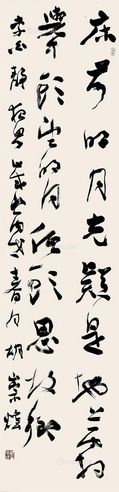 床前明月光疑是地上霜
举头望明月低头思故乡
李白静夜思
春月胡